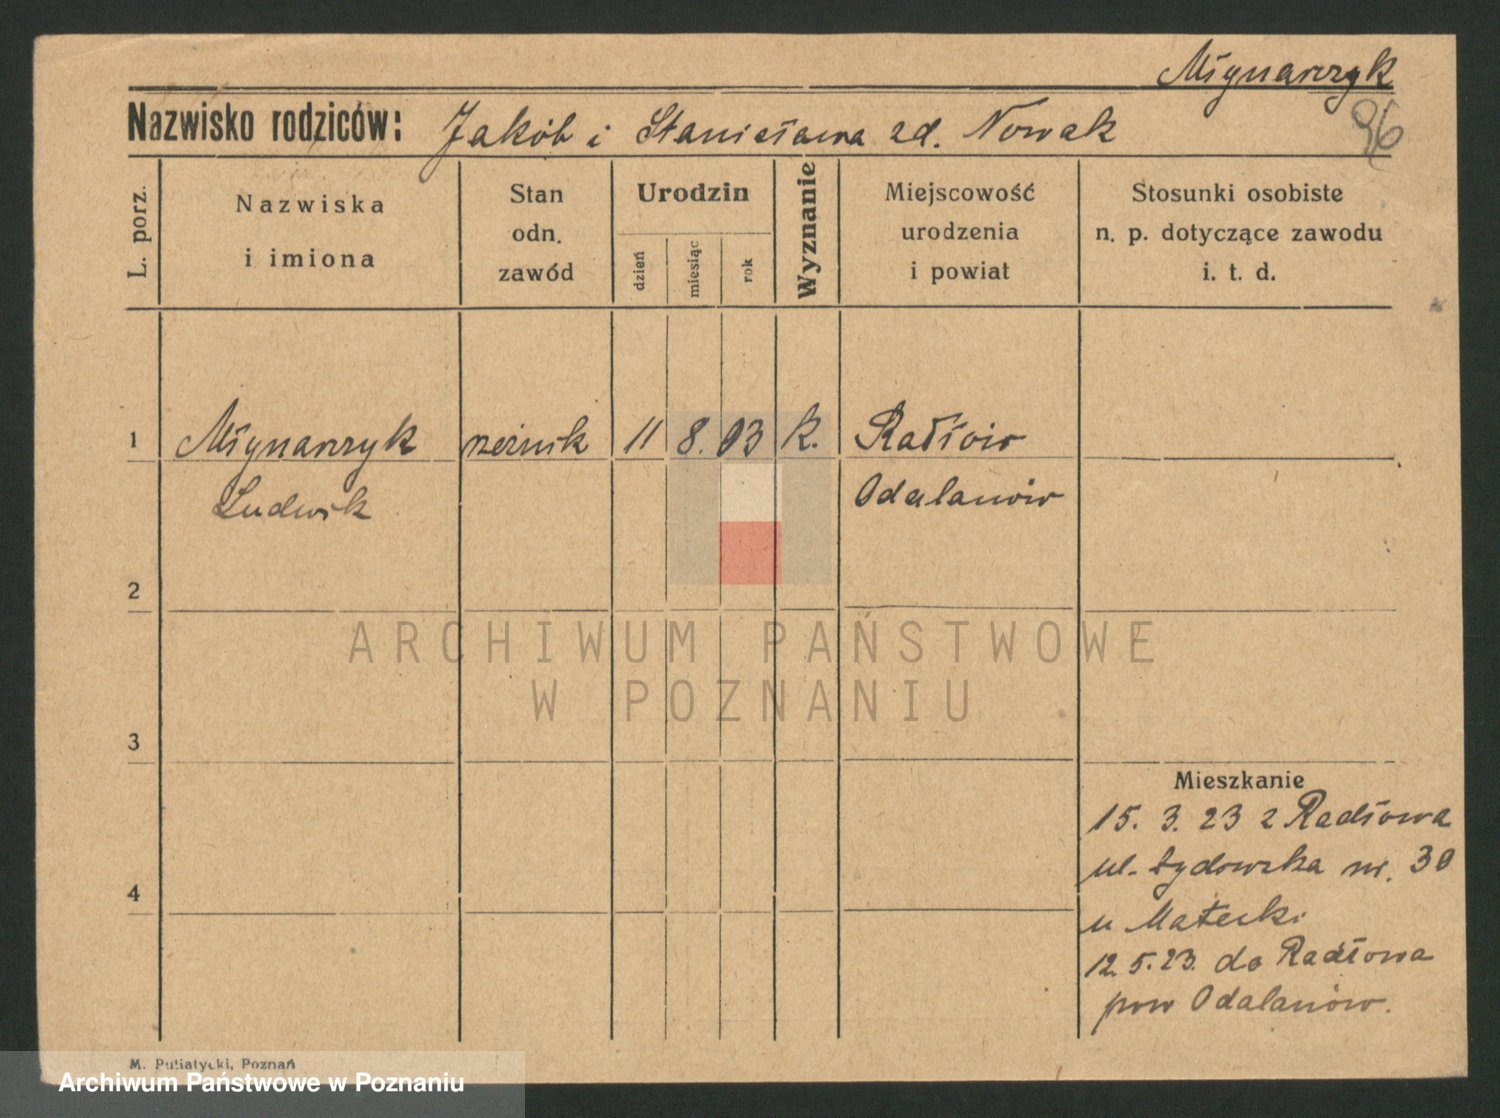 Młynarczyk
Nazwisko rodziców: Jakób i Stanisława zd. Nowak
96
L. porz.
Nazwiska
i imiona
Stan
odn.
zawód
Urodzin
dzień
miesiąc
rok
Wyznanie
Miejscowość
urodzenia
i powiat
Stosunki osobiste
n. p. dotyczące zawodu
i. t. d.
1 Młynarczyk rzeźnik 11 8. 03 k. Radłów
Ludwik Odalanów
2
ARCHIWUM PAŃSTWOWE
W POZNANIU
3
Mieszkanie
15. 3. 23 z Radłowa
ul. Żydowska nr. 30
4
u Małecki
12. 5. 23. do Radłowa
pow Odalanów.
M. Putiatycki, Poznań
Archiwum Państwowe w Poznaniu